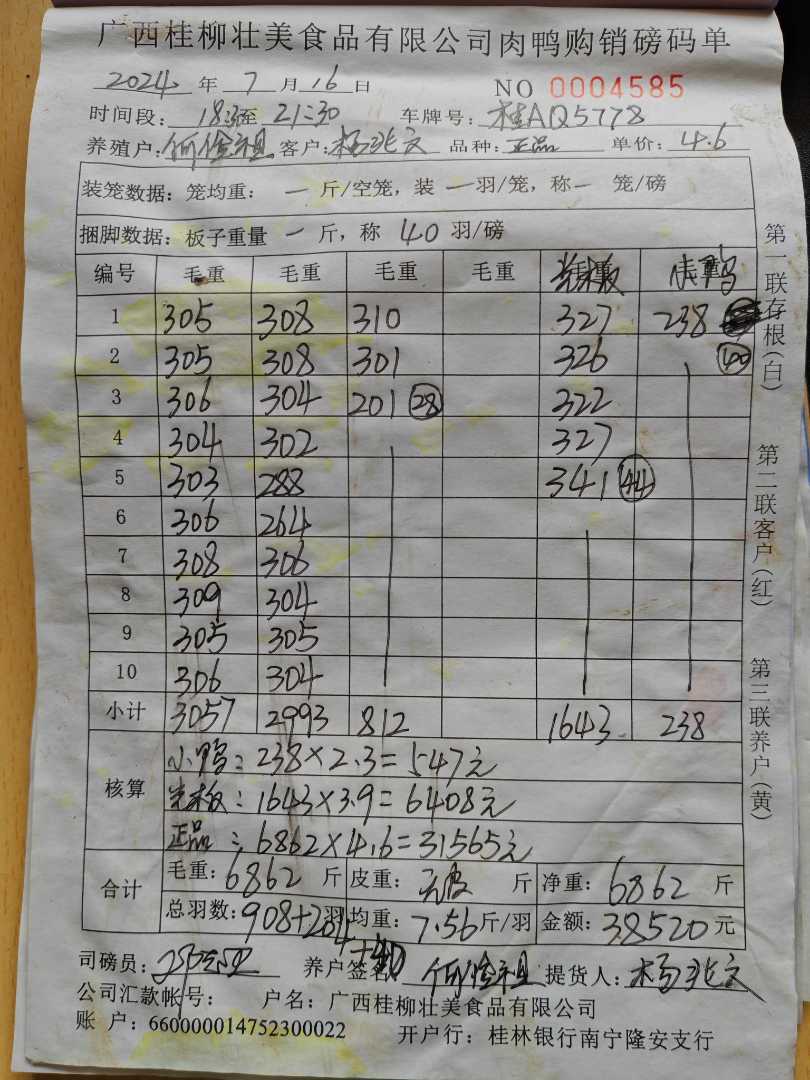 广西桂柳壮美食品有限公司肉鸭购销磅码单
2024 年 7 月 16 日 NO 0004585
时间段: 18:3 至 21:30 车牌号: 桂AQ5778
养殖户: 何 祖 客户: 杨兆文 品种: 正品 单价: 4.6
装笼数据: 笼均重: 一 斤/空笼, 装 一 羽/笼, 称 一 笼/磅
捆脚数据: 板子重量 一 斤, 称 40 羽/磅
编号 毛重 毛重 毛重 毛重 小鸭
1 305 308 310 327 238
2 305 308 301 326 40
3 306 304 201 28 322
4 304 302 327
5 303 288 341 44
6 306 264
7 308 306
8 309 304
9 305 305
10 306 304
小计 3057 2993 812 1643 238
核算 小鸭: 238×2.3=547元
板: 1643×3.9=6408元
正品: 6862×4.6=31565元
合计 毛重: 6862 斤 皮重: 斤 净重: 6862 斤
总羽数: 908+204+40 羽 均重: 7.56 斤/羽 金额: 38520 元
司磅员: 养户签名: 何 祖 提货人: 杨兆文
公司汇款帐号: 户名: 广西桂柳壮美食品有限公司
账 户: 660000014752300022 开户行: 桂林银行南宁隆安支行
第一联存根(白) 第二联客户(红) 第三联养户(黄)